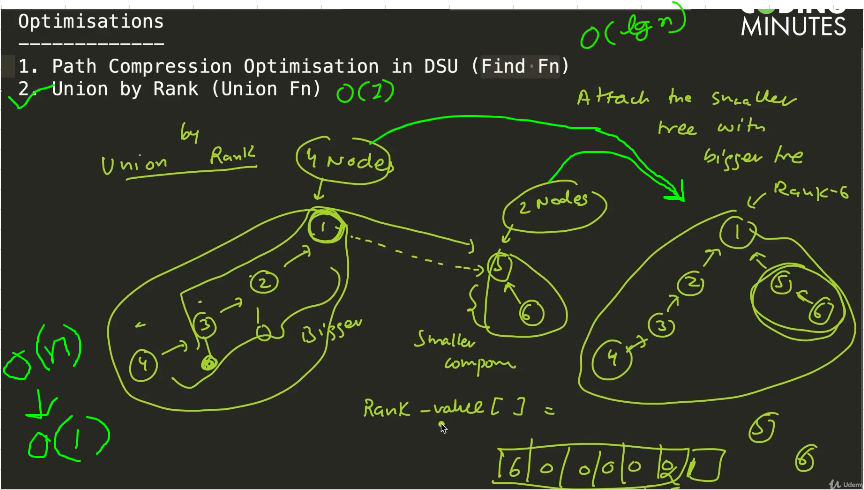 Optimisations
-------------
1. Path Compression Optimisation in DSU (Find Fn)
2. Union by Rank (Union Fn) O(1)
O(lg n)
CODING
MINUTES
Attach the smaller
tree with
bigger tre
Union by Rank
4 Nodes
2 Nodes
Rank-6
1
2
3
4
Bigger
5
6
Smaller
compon
1
2
3
4
5
6
O(n)
O(1)
Rank-value[ ] =
6 0 0 0 0 2
5
6
Udemy